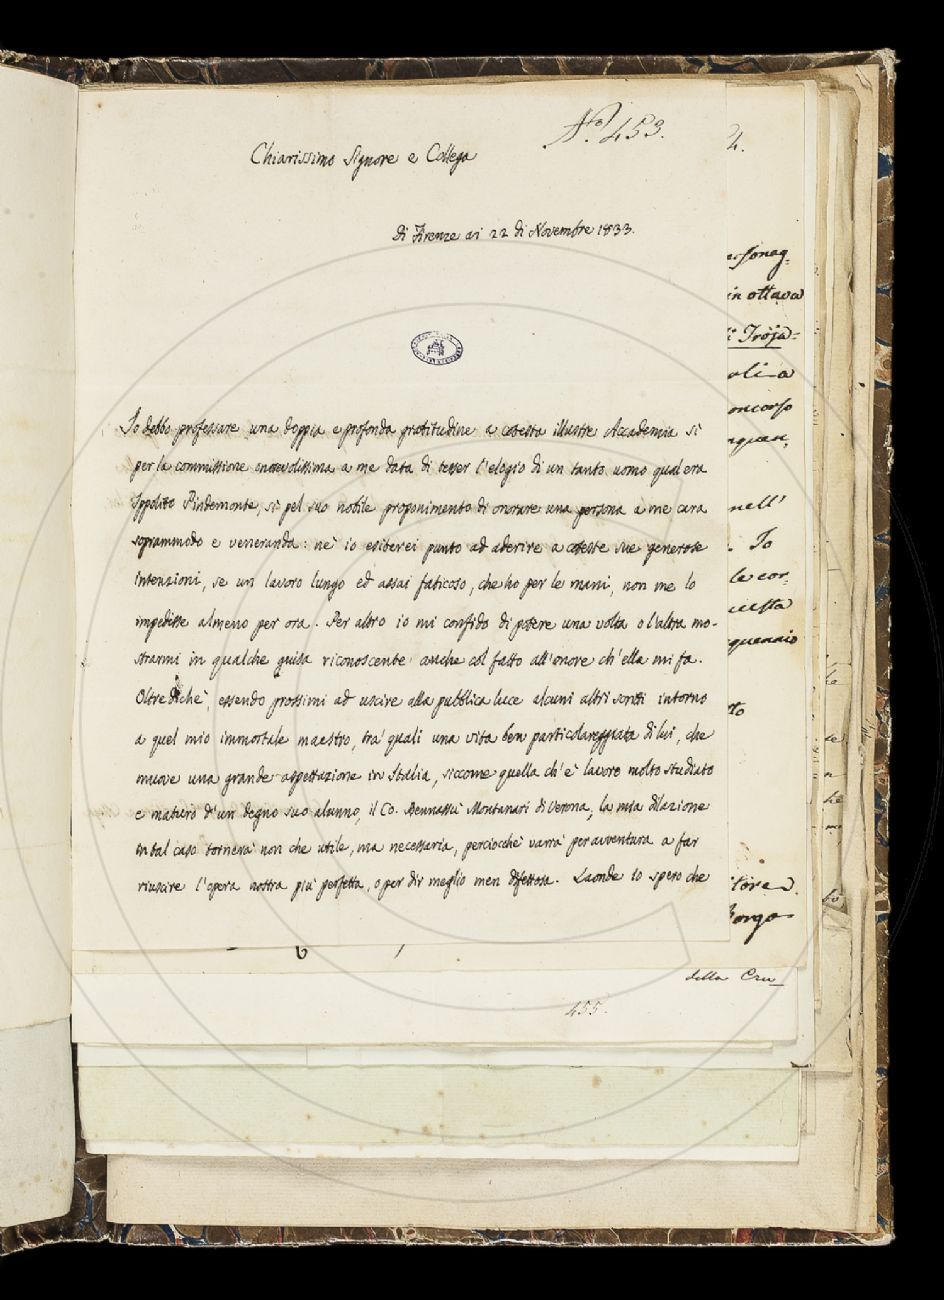 No. 453.
Chiarissimo Signore e Collega
di Firenze ai 22 di Novembre 1833.
Io debbo professare una doppia e profonda gratitudine a cotesta illustre Accademia sì
per la commissione onorevolissima a me data di tesser l'elogio di un tanto uomo qual era
Ippolito Pindemonte, sì pel suo nobile proponimento di onorare una persona a me cara
soprammodo e veneranda: nè io esiterei punto ad aderire a coteste sue generose
intenzioni, se un lavoro lungo ed assai faticoso, che ho per le mani, non me lo
impedisse almeno per ora. Per altro io mi confido di potere una volta o l'altra mo-
strarmi in qualche guisa riconoscente anche col fatto all'onore ch'ella mi fa.
Oltredichè, essendo prossimi ad uscire alla pubblica luce alcuni altri scritti intorno
a quel mio immortale maestro, tra' quali una vita ben particolareggiata di lui, che
muove una grande aspettazione in Italia, siccome quella ch'è lavoro molto studiato
e maturo d'un degno suo alunno, il Co. Bennassù Montanari di Verona, la mia dilazione
in tal caso tornerà non che utile, ma necessaria, perciocchè varrà per avventura a far
riuscire l'opera nostra più perfetta, o per dir meglio men difettosa. Laonde io spero che
in ottava
di Troja
oncorso
nell'
. Io
le cor-
della Cru
455.